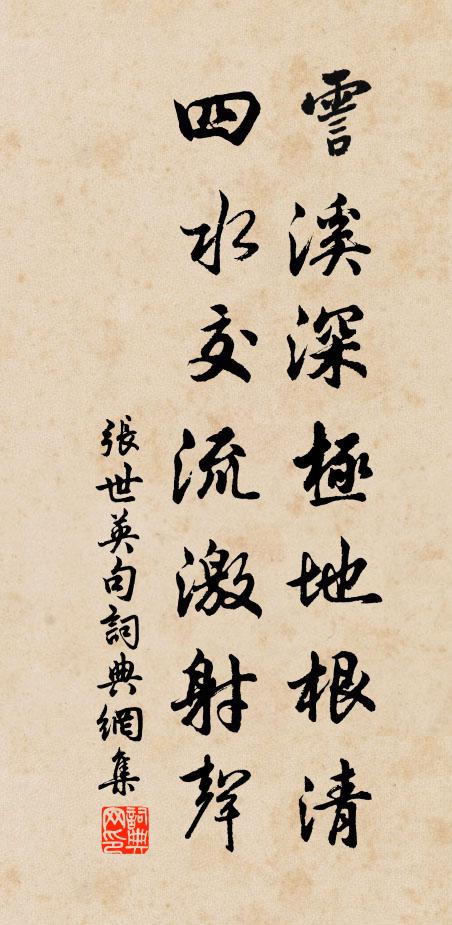 霅溪深極地根清
四水交流激射聲
張世英句詞典網集
詞典网印